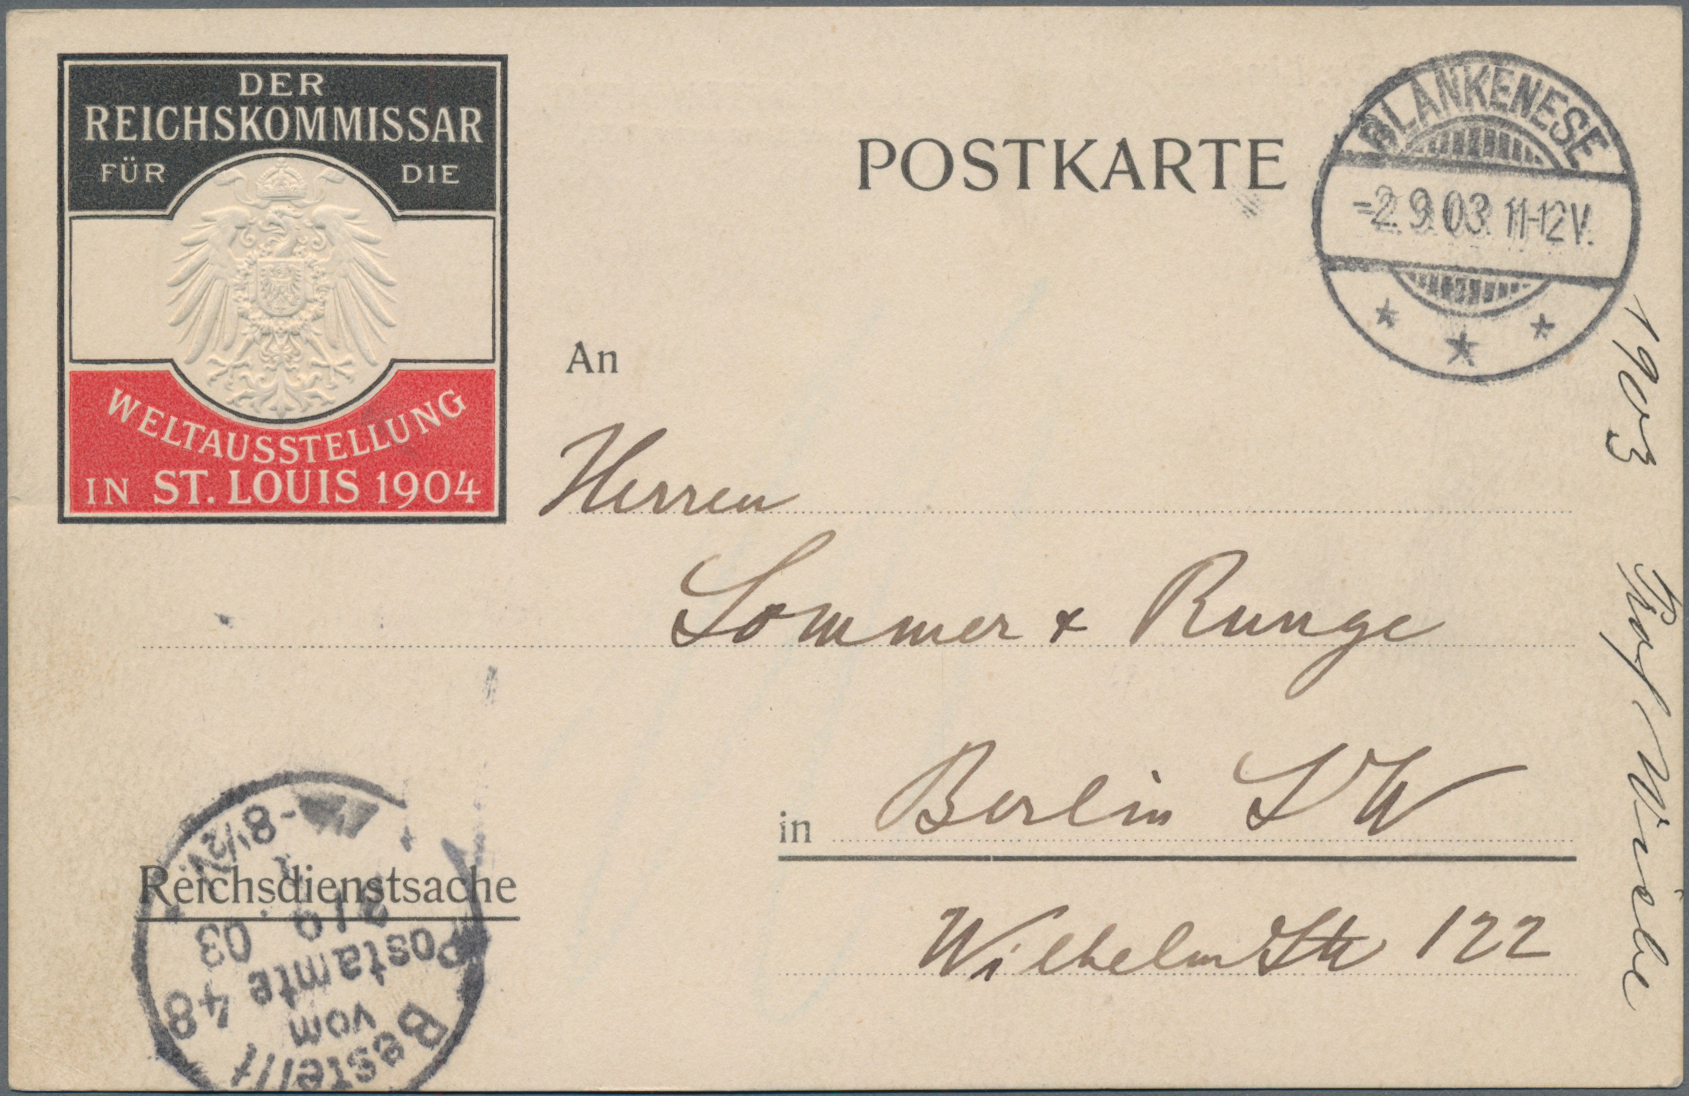 DER
REICHSKOMMISSAR
FÜR DIE
WELTAUSSTELLUNG
IN ST. LOUIS 1904
POSTKARTE
BLANKENESE
-2.9.03. 11-12V.
An
Herren
Sommer & Runge
in Berlin SW
Wilhelm Str 122
Reichsdienstsache
Bestellt
vom
Postamte 48
3/9. 03
-8½V.
1903
Prof